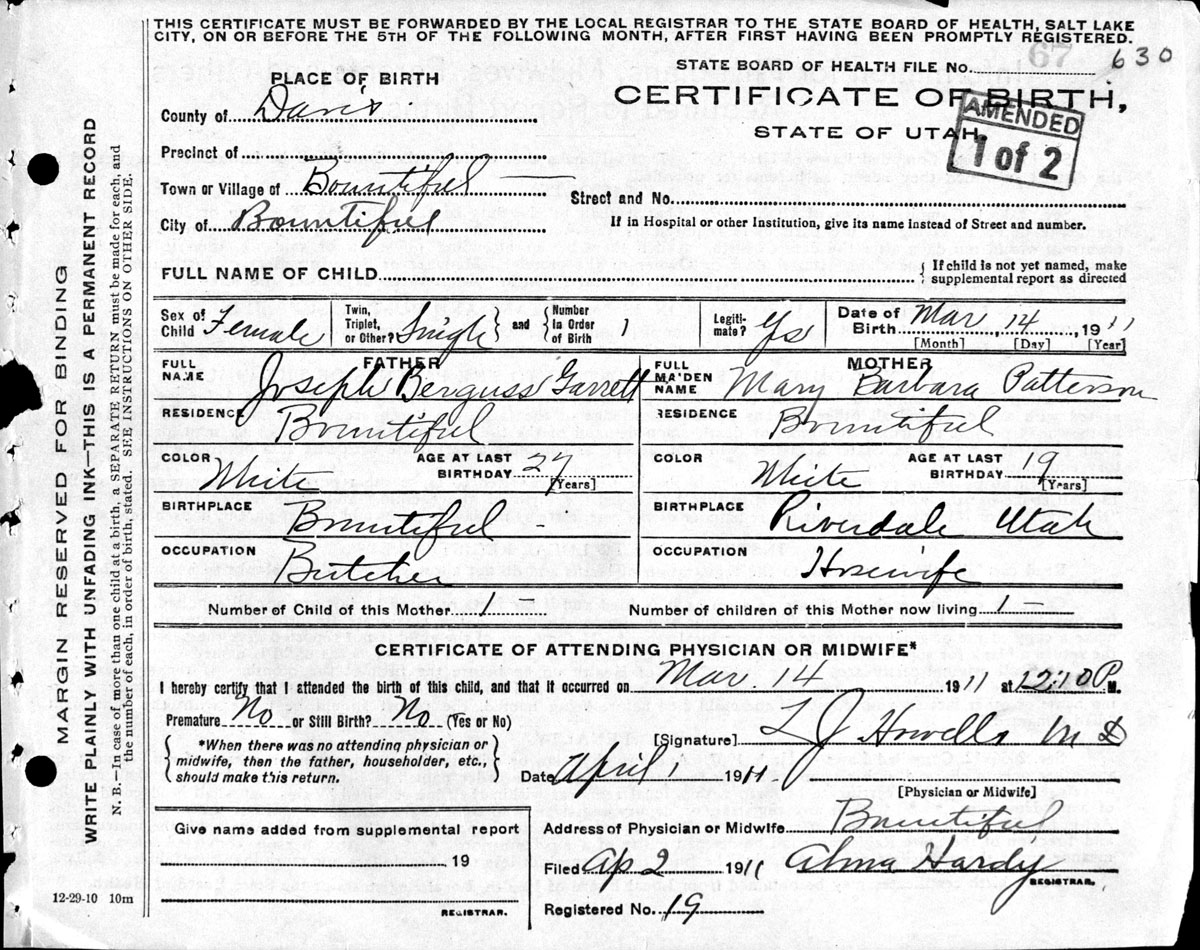 THIS CERTIFICATE MUST BE FORWARDED BY THE LOCAL REGISTRAR TO THE STATE BOARD OF HEALTH, SALT LAKE
CITY, ON OR BEFORE THE 5TH OF THE FOLLOWING MONTH, AFTER FIRST HAVING BEEN PROMPTLY REGISTERED.
STATE BOARD OF HEALTH FILE NO. 67 630
PLACE OF BIRTH
CERTIFICATE OF BIRTH,
STATE OF UTAH
AMENDED
1 of 2
County of Davis
Precinct of
Town or Village of Bountiful
Street and No.
City of Bountiful
If in Hospital or other Institution, give its name instead of Street and number.
FULL NAME OF CHILD
{ If child is not yet named, make
supplemental report as directed
Sex of Child Female
Twin, Triplet, or Other? Single } and { Number in Order of Birth 1
Legitimate? Yes
Date of Birth Mar 14, 1911
[Month] [Day] [Year]
FATHER
MOTHER
FULL NAME Joseph Berguss Garrett
FULL MAIDEN NAME Mary Barbara Patterson
RESIDENCE Bountiful
RESIDENCE Bountiful
COLOR White AGE AT LAST BIRTHDAY 27 [Years]
COLOR White AGE AT LAST BIRTHDAY 19 [Years]
BIRTHPLACE Bountiful -
BIRTHPLACE Riverdale Utah
OCCUPATION Butcher
OCCUPATION Hosewife
Number of Child of this Mother 1 -
Number of children of this Mother now living 1 -
CERTIFICATE OF ATTENDING PHYSICIAN OR MIDWIFE*
I hereby certify that I attended the birth of this child, and that it occurred on Mar. 14 1911 at 12:10 P. M.
Premature No or Still Birth? No (Yes or No)
{ *When there was no attending physician or
midwife, then the father, householder, etc.,
should make this return. }
[Signature] L J Howells M D
Date April 1 1911
[Physician or Midwife]
Give name added from supplemental report
19
REGISTRAR.
Address of Physician or Midwife Bountiful
Filed Ap 2 1911 Alma Hardy
REGISTRAR.
Registered No. 19
12-29-10 10m
MARGIN RESERVED FOR BINDING
WRITE PLAINLY WITH UNFADING INK—THIS IS A PERMANENT RECORD
N. B.—In case of more than one child at a birth, a SEPARATE RETURN must be made for each, and
the number of each, in order of birth, stated. SEE INSTRUCTIONS ON OTHER SIDE.